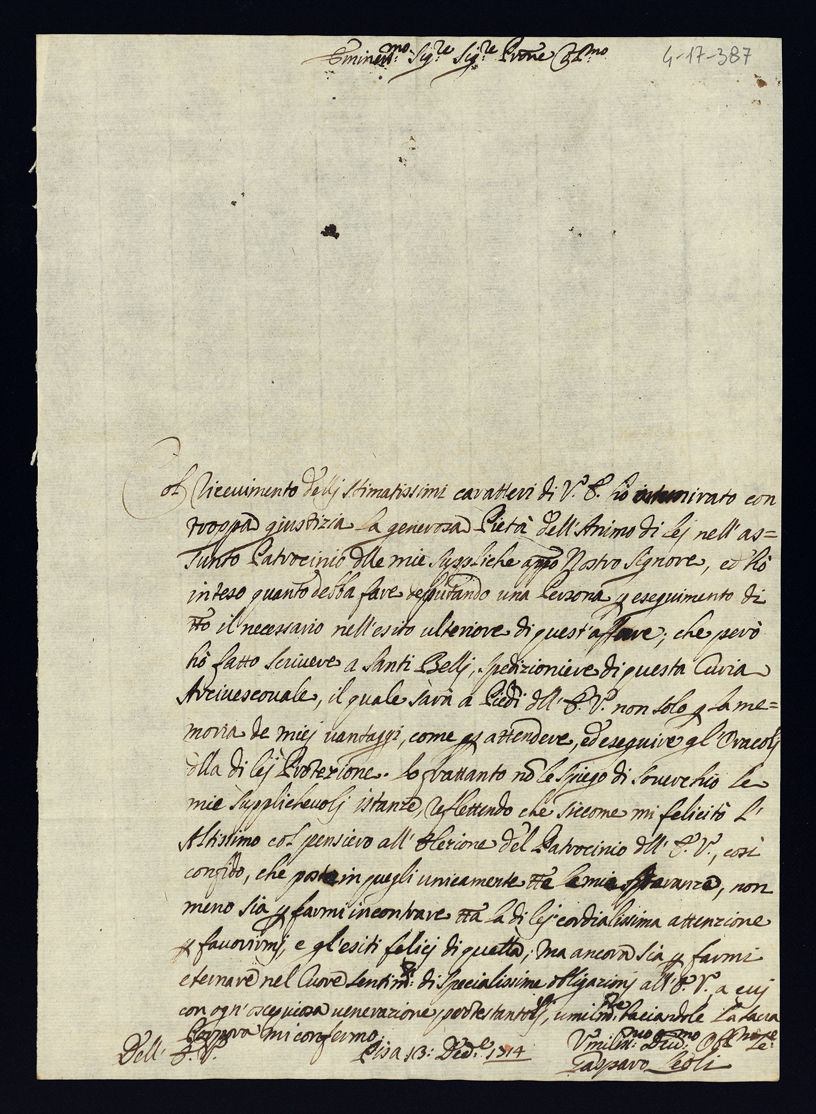 Eminen.mo Sig.re Sig.re P̄rone C.mo
4-17-387
Col ricevimento delli stimatissimi caratteri di V. E. hò ammirato con
troppa giustizia la generosa Pietà dell'Animo di lej nell'as=
sunto Patrocinio dlle mie suppliche app̄o Nostro Signore, ed hò
inteso quanto debba fare deputando una Persona p eseguimento di
tt̄o il necessario nell'esito ulteriore di quest'affare; che però
hò fatto scrivere a Santi Bellj, spedizioniere di questa Curia
Arcivescovale, il quale sarà a Piedi dll' E. V. non solo p la me=
moria de miej vantaggi, come p attendere, ed eseguire gl'Oracolj
dlla di lej Protezione. Io frattanto nō le spiego di soverchio le
mie supplichevolj istanze, reflettendo che siccome mi felicitò l'
Altissimo col pensiero all' Elezione del Patrocinio dll' E. V., così
confido, che poste in quegli unicamente tt̄e le mie speranze, non
meno sia p farmi incontrare tt̄a la di lej cordialissima attenzione
p favorirmj, e gl'esiti felicj di quella; ma ancora sia p farmi
eternare nel Cuore sentim.ti di specialissime obligazionj all' E. V. a cuj
con ogn'ossequiosa venerazione protestantolj, umilm.te baciandole la sacra
Porpora mi confermo.
Dell' E. V.
Pisa 13: Ded.e 1714
Umiliss.mo Devd.mo Obl.mo Se.re
Gasparo Leoli